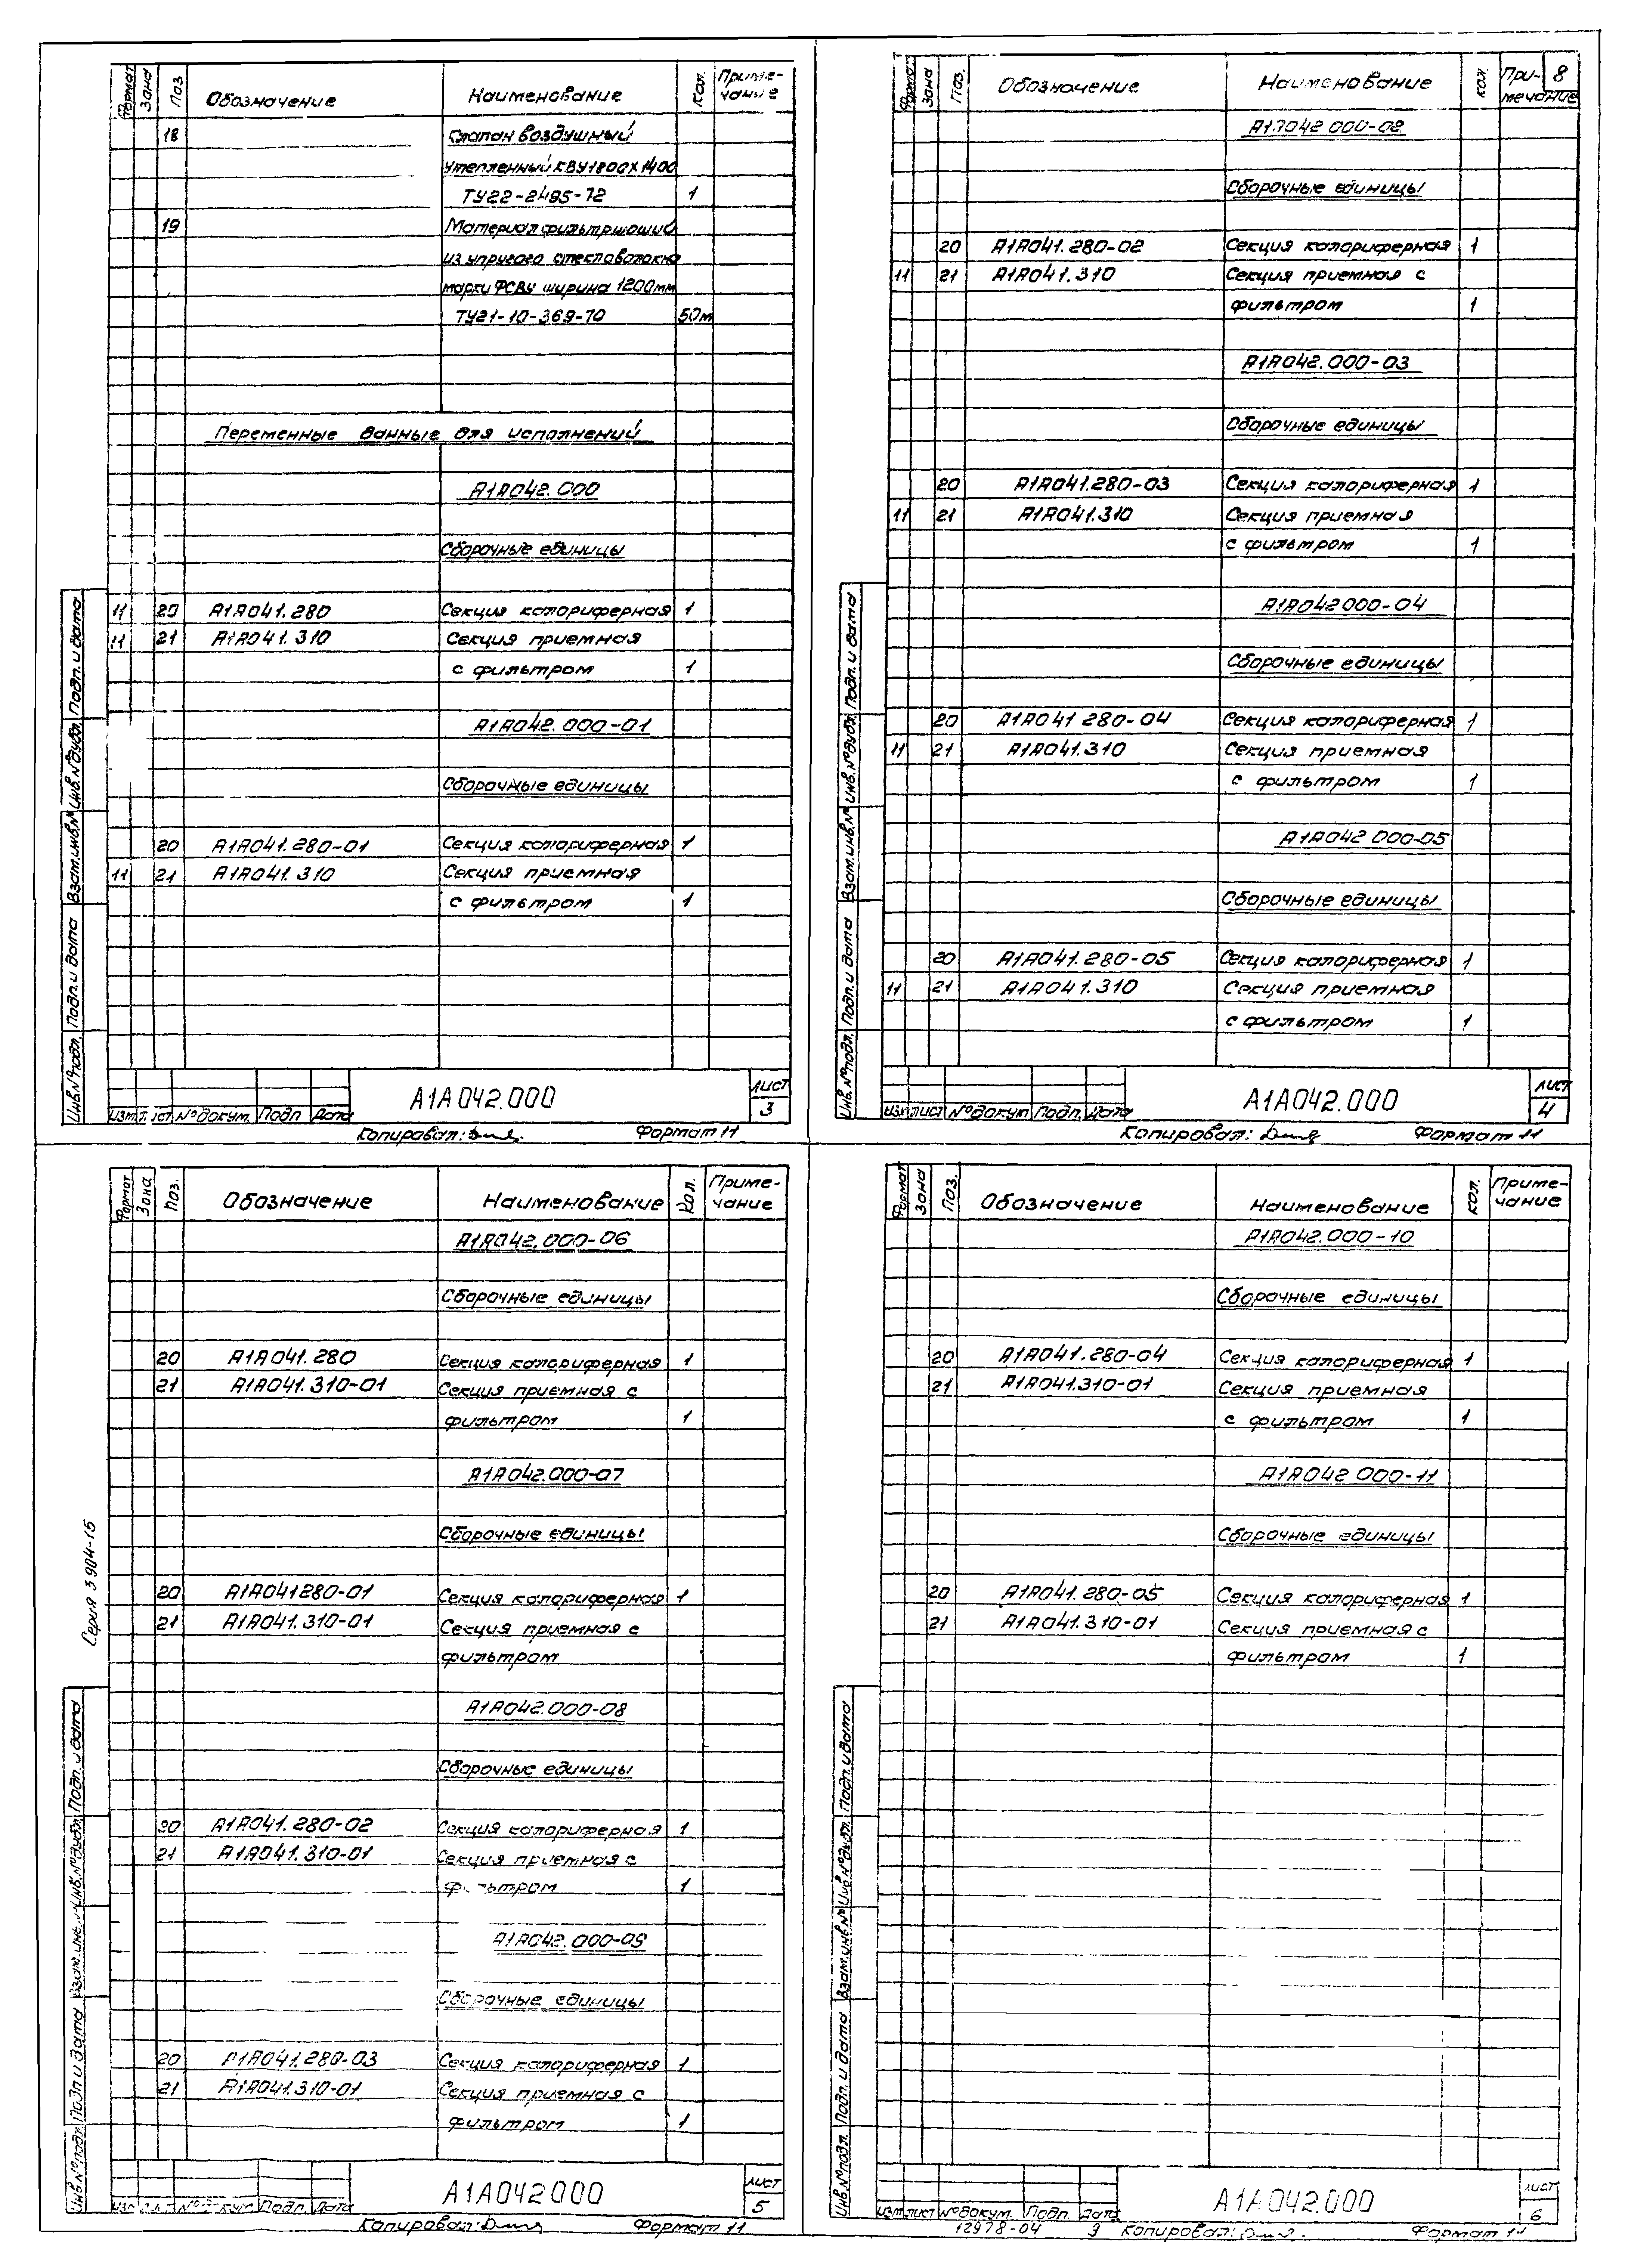 Формат Зона Поз. Обозначение Наименование Кол. Приме-
чание
18 Клапан воздушный
утепленный КВУ1800х1400
ТУ22-2485-72 1
19 Материал фильтрующий
из упругого стекловолокна
марки ФСВУ ширина 1200мм
ТУ21-10-369-70 50м
Переменные данные для исполнений
А1А042.000
Сборочные единицы
11 20 А1А041.280 Секция калориферная 1
11 21 А1А041.310 Секция приемная
с фильтром 1
А1А042.000-01
Сборочные единицы
20 А1А041.280-01 Секция калориферная 1
11 21 А1А041.310 Секция приемная
с фильтром 1
Инв.№подл. Подп.и дата Взам.инв.№ Инв.№дубл. Подп.и дата
Изм.Лист №докум. Подп Дата
А1А042.000
Лист
3
Копировал: Формат 11
Формат Зона Поз. Обозначение Наименование Кол. При-
мечание
8
А1А042 000-02
Сборочные единицы
20 А1А041.280-02 Секция калориферная 1
11 21 А1А041.310 Секция приемная с
фильтром 1
А1А042.000-03
Сборочные единицы
20 А1А041.280-03 Секция калориферная 1
11 21 А1А041.310 Секция приемная
с фильтром 1
А1А042000-04
Сборочные единицы
20 А1А041 280-04 Секция калориферная 1
11 21 А1А041.310 Секция приемная
с фильтром 1
А1А042 000-05
Сборочные единицы
20 А1А041.280-05 Секция калориферная 1
11 21 А1А041.310 Секция приемная
с фильтром 1
Инв.№подл. Подп.и дата Взам.инв.№ Инв.№дубл. Подп.и дата
Изм.Лист №докум Подп. Дата
А1А042.000
Лист
4
Копировал: Формат 11
Формат Зона Поз. Обозначение Наименование Кол. Приме-
чание
А1А042.000-06
Сборочные единицы
20 А1А041.280 Секция калориферная 1
21 А1А041.310-01 Секция приемная с
фильтром 1
А1А042.000-07
Сборочные единицы
20 А1А041280-01 Секция калориферная 1
21 А1А041.310-01 Секция приемная с
фильтром
А1А042.000-08
Сборочные единицы
20 А1А041.280-02 Секция калориферная 1
21 А1А041.310-01 Секция приемная с
фильтром 1
А1А042.000-09
Сборочные единицы
20 А1А041.280-03 Секция калориферная 1
21 А1А041.310-01 Секция приемная с
фильтром 1
Серия 3 904-15
Инв.№подл Подп и дата Взам.инв.№ Инв.№дубл. Подп.и дата
Изм Лист №докум. Подп. Дата
А1А042000
Лист
5
Копировал: Формат 11
Формат Зона Поз. Обозначение Наименование Кол. Приме-
чание
А1А042.000-10
Сборочные единицы
20 А1А041.280-04 Секция калориферная 1
21 А1А041.310-01 Секция приемная
с фильтром 1
А1А042 000-11
Сборочные единицы
20 А1А041.280-05 Секция калориферная 1
21 А1А041.310-01 Секция приемная с
фильтром 1
Инв.№подл. Подп. и дата Взам.инв.№ Инв.№дубл. Подп.и дата
Изм.Лист №докум. Подп. Дата
А1А042.000
Лист
6
12978-04 9 Копировал: Формат 11